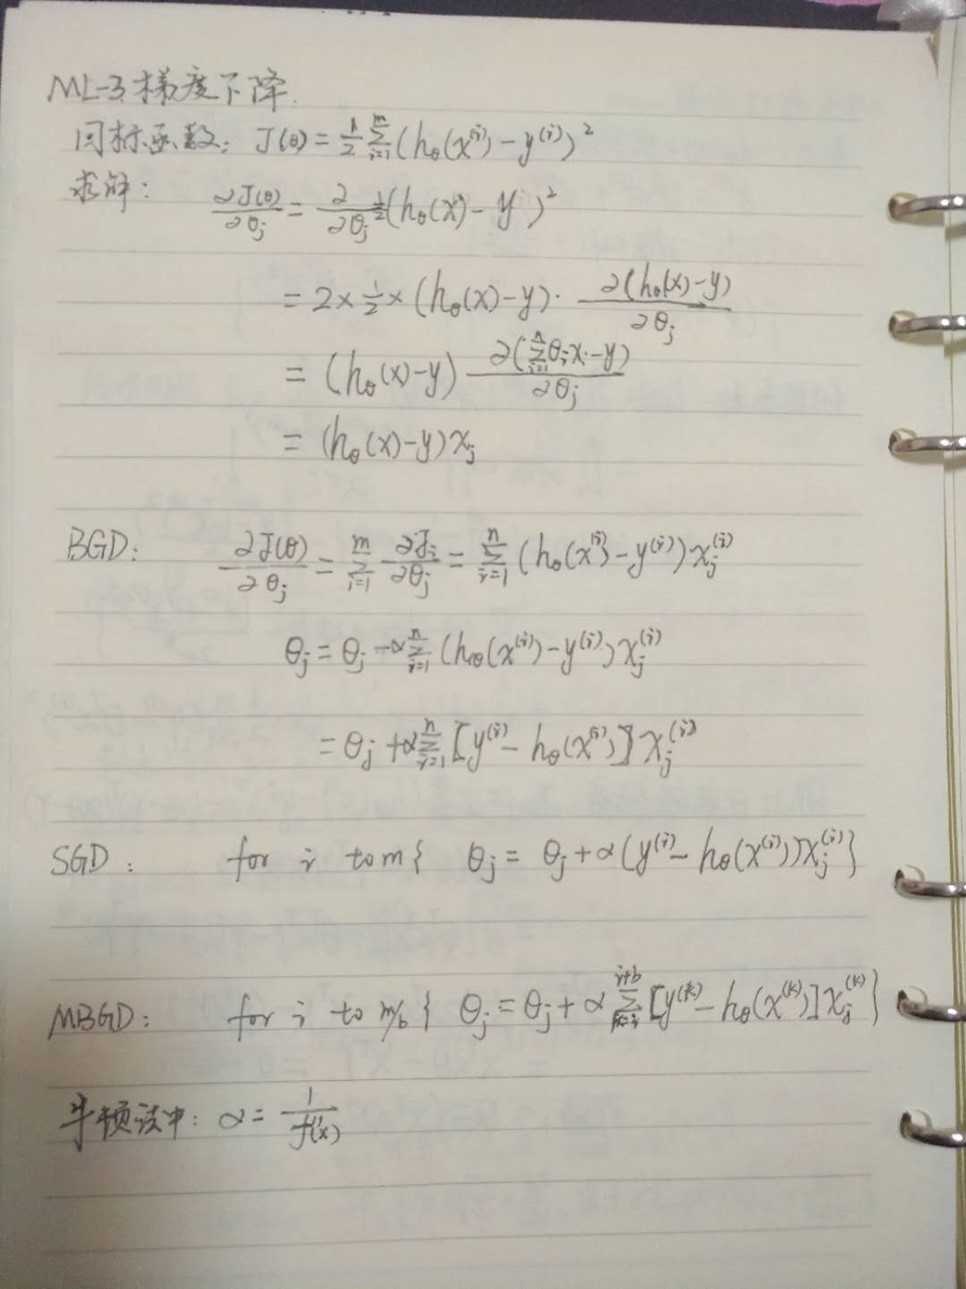 ML-3 梯度下降.
目标函数: J(θ) = 1/2 Σ_{i=1}^{m} (h_θ(x^{(i)}) - y^{(i)})^2
求解: ∂J(θ)/∂θ_j = ∂/∂θ_j 1/2 (h_θ(x) - y)^2
= 2 × 1/2 × (h_θ(x) - y) · ∂(h_θ(x) - y)/∂θ_j
= (h_θ(x) - y) ∂(Σ_{i=1}^{n} θ_i x_i - y)/∂θ_j
= (h_θ(x) - y) x_j
BGD: ∂J(θ)/∂θ_j = Σ_{i=1}^{m} ∂J_i/∂θ_j = Σ_{i=1}^{n} (h_θ(x^{(i)}) - y^{(i)}) x_j^{(i)}
θ_j = θ_j - α Σ_{i=1}^{n} (h_θ(x^{(i)}) - y^{(i)}) x_j^{(i)}
= θ_j + α Σ_{i=1}^{n} [y^{(i)} - h_θ(x^{(i)})] x_j^{(i)}
SGD: for i to m { θ_j = θ_j + α (y^{(i)} - h_θ(x^{(i)})) x_j^{(i)} }
MBGD: for i to m/b { θ_j = θ_j + α Σ_{k=i}^{i+b} [y^{(k)} - h_θ(x^{(k)})] x_j^{(k)} }
牛顿法中: α = 1/f''(x)